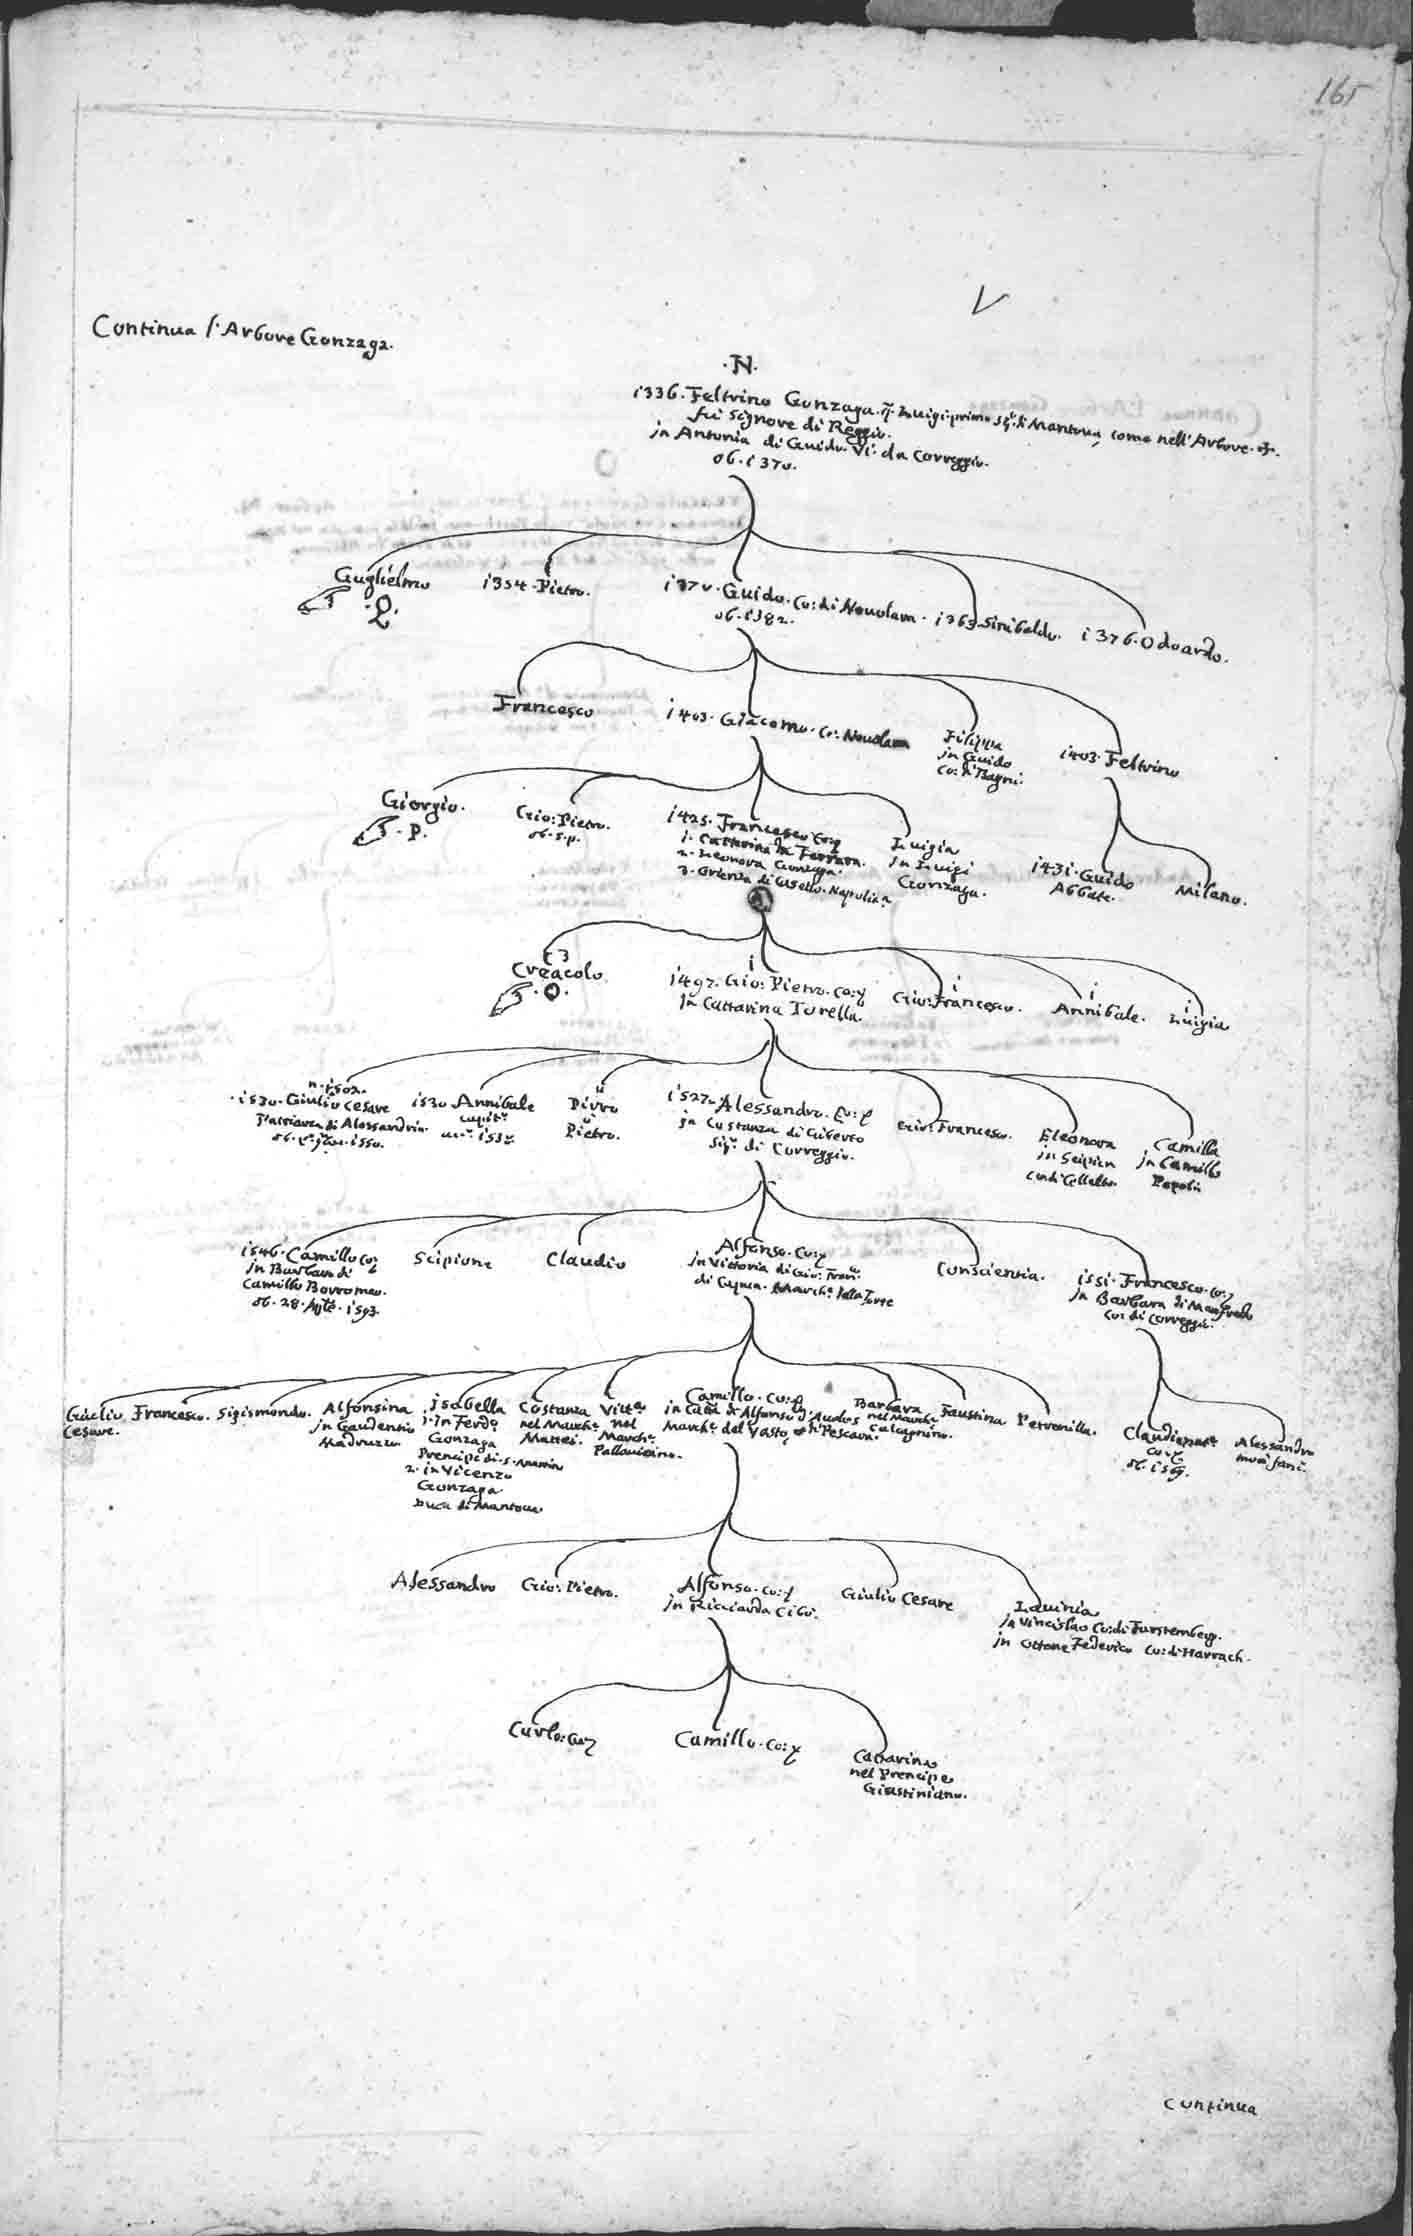 165
V
Continua l'Arbore Gonzaga.
.N.
1336. Feltrino Gonzaga. q. Luigi primo Sig. di Mantova, come nell'Arbore.
fu Signore di Reggio.
in Antonia di Guido VI. da Correggio.
ob. 1370.
Guglielmo
.Q.
1354. Pietro.
1370. Guido. Co: di Nouolara.
ob. 1382.
1363. Sinibaldo.
1376. Odoardo.
Francesco
1403. Giacomo. Co: Nouolara
Filippa
in Guido
Co: di Bagni.
1403. Feltrino
Giorgio.
.P.
Gio: Pietro.
ob. s. p.
1425. Francesco Co:
1. Cattarina da Ferrara.
2. Leonora Gonzaga.
3. di Napoli
Luigia
in Luigi
Gonzaga.
1431. Guido
Abbate.
Milano.
3
Creacolo
.O.
1
1497. Gio: Pietro. Co:
in Cattarina Torella.
1
Gio: Francesco.
1
Annibale.
1
Luigia
n. 1502.
1530. Giulio Cesare
Patriarca di Alessandria.
ob. 1550.
1530 Annibale
capit.
1537.
Pirro
ò
Pietro.
1527. Alessandro. Co:
in Costanza di Giberto
Sig. di Correggio.
Gio: Francesco.
Eleonora
in Scipion
Co: di Collalto.
Camilla
in Camillo
Pepoli
1546. Camillo Co:
in Barbara di
Camillo Borromeo.
ob. 28. 1593.
Scipione
Claudio
Alfonso. Co:
in Vittoria di Gio: Fran.
di Capua. March. della Torre
Conscientia.
1551. Francesco. Co:
in Barbara di Manfredo
Co: di Correggio.
Giulio
Cesare.
Francesco.
Sigismondo.
Alfonsina
in Gaudentio
Madruzzo
Isabella
1. in Ferdo
Gonzaga
Prencipe di S. Martin
2. in Vicenzo
Gonzaga
Duca di Mantoua
Costanza
nel March.
Mattei.
Vitta
nel
March.
Pallauicino.
Camillo. Co:
in Catta di Alfonso d'Aualos
March. del Vasto, e di Pescara.
Barbara
nel March.
Calcagnino.
Faustina
Petronilla.
Claudia
Co:
ob. 1569.
Alessandro
morì
Alessandro
Gio: Pietro.
Alfonso. Co:
in Ricciarda Cibo.
Giulio Cesare
Lauinia
in Vincislao Co: di Furstemberg.
in Ottone Federico Co: di Harrach.
Carlo: Co:
Camillo. Co:
Catarina
nel Prencipe
Giustiniano.
Continua